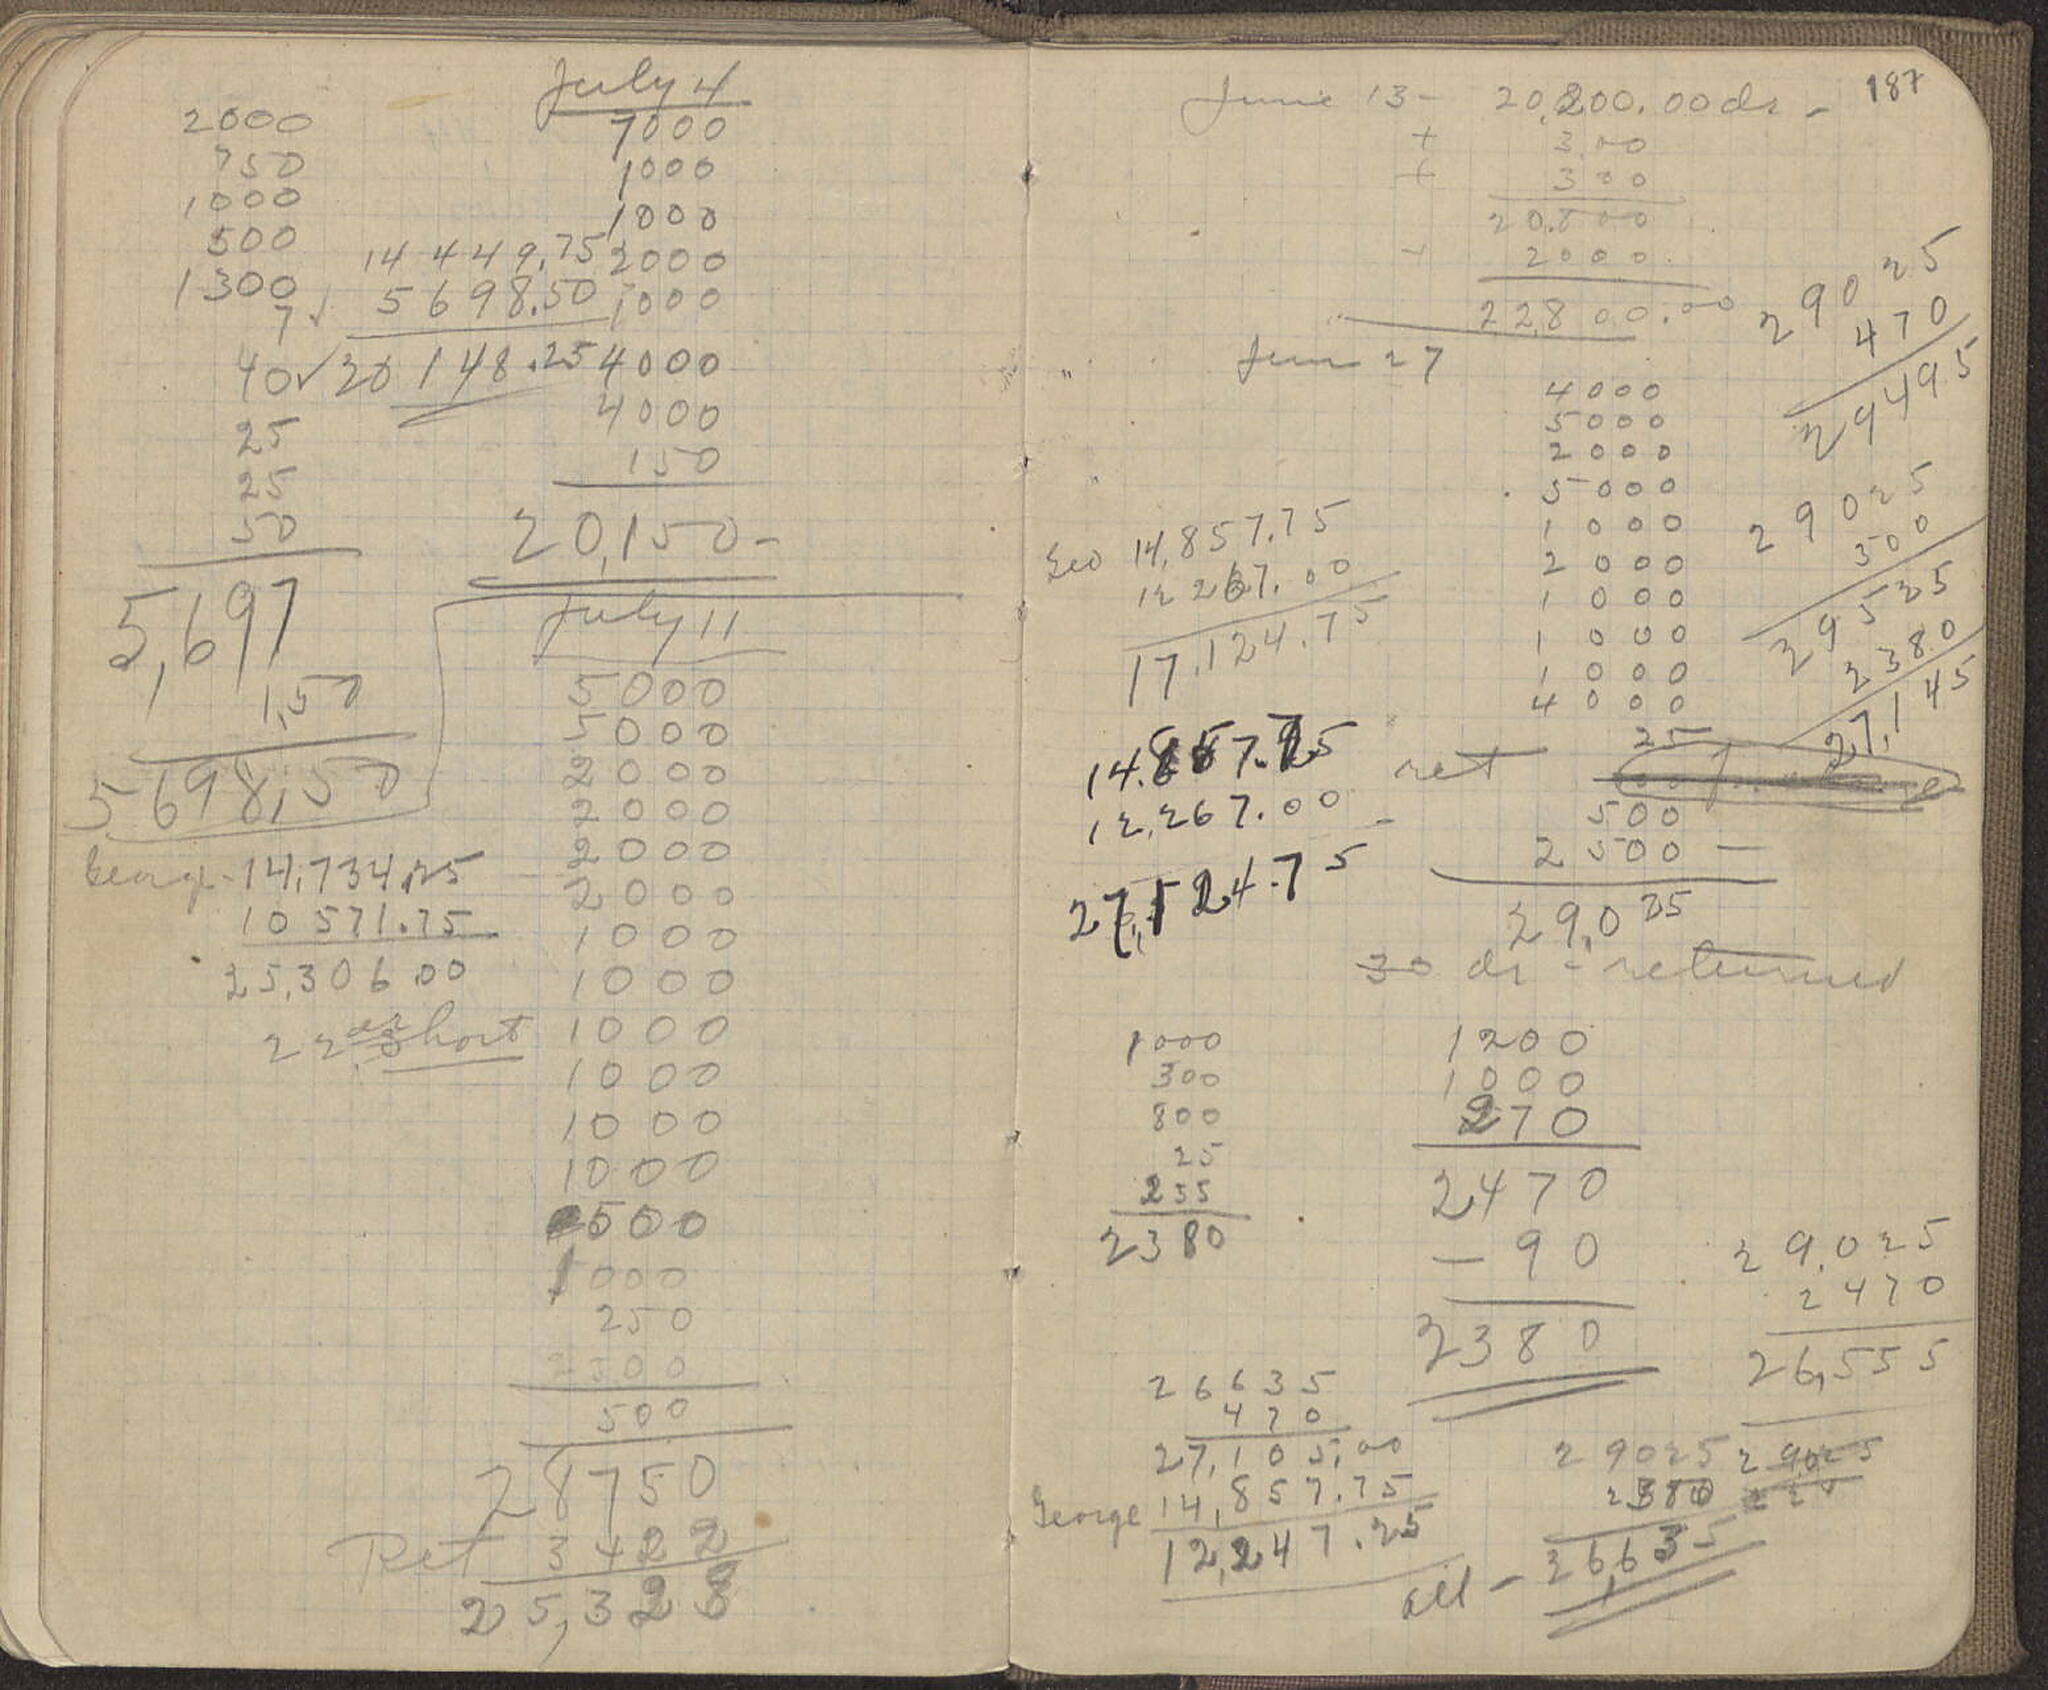 July 4
2000
750
1000
500
1300
7✓
40✓
25
25
50
5,697
1,50
5698,50
14 449,75
5698.50
20 148.25
7000
1000
1000
2000
1000
4000
4000
150
20,150-
George- 14,734.25
10 571.75
25,306.00
22 dr short
July 11
5000
5000
2000
2000
2000
2000
1000
1000
1000
1000
1000
1000
500
1000
250
2500
500
28750
Ret 3422
25,328
187
June 13- 20,200.00 dr -
+ 300
+ 300
20.800
+ 2000.
22,800.00
29025
470
29495
June 27
4000
5000
2000
5000
1000
2000
1000
1000
1000
4000
25
ret
500
2500 -
29,025
30 dr - returned
29025
500
29525
2380
27,145
Geo 14,857.75
12 267.00
17,124.75
14.857.75
12,267.00 -
27,124.75
1000
300
800
25
255
2380
1200
1000
270
2470
- 90
2380
29,025
2470
26,555
26635
470
27,105,00
George 14,857.75
12,247.25
29025
2380
all - 26,635
29025